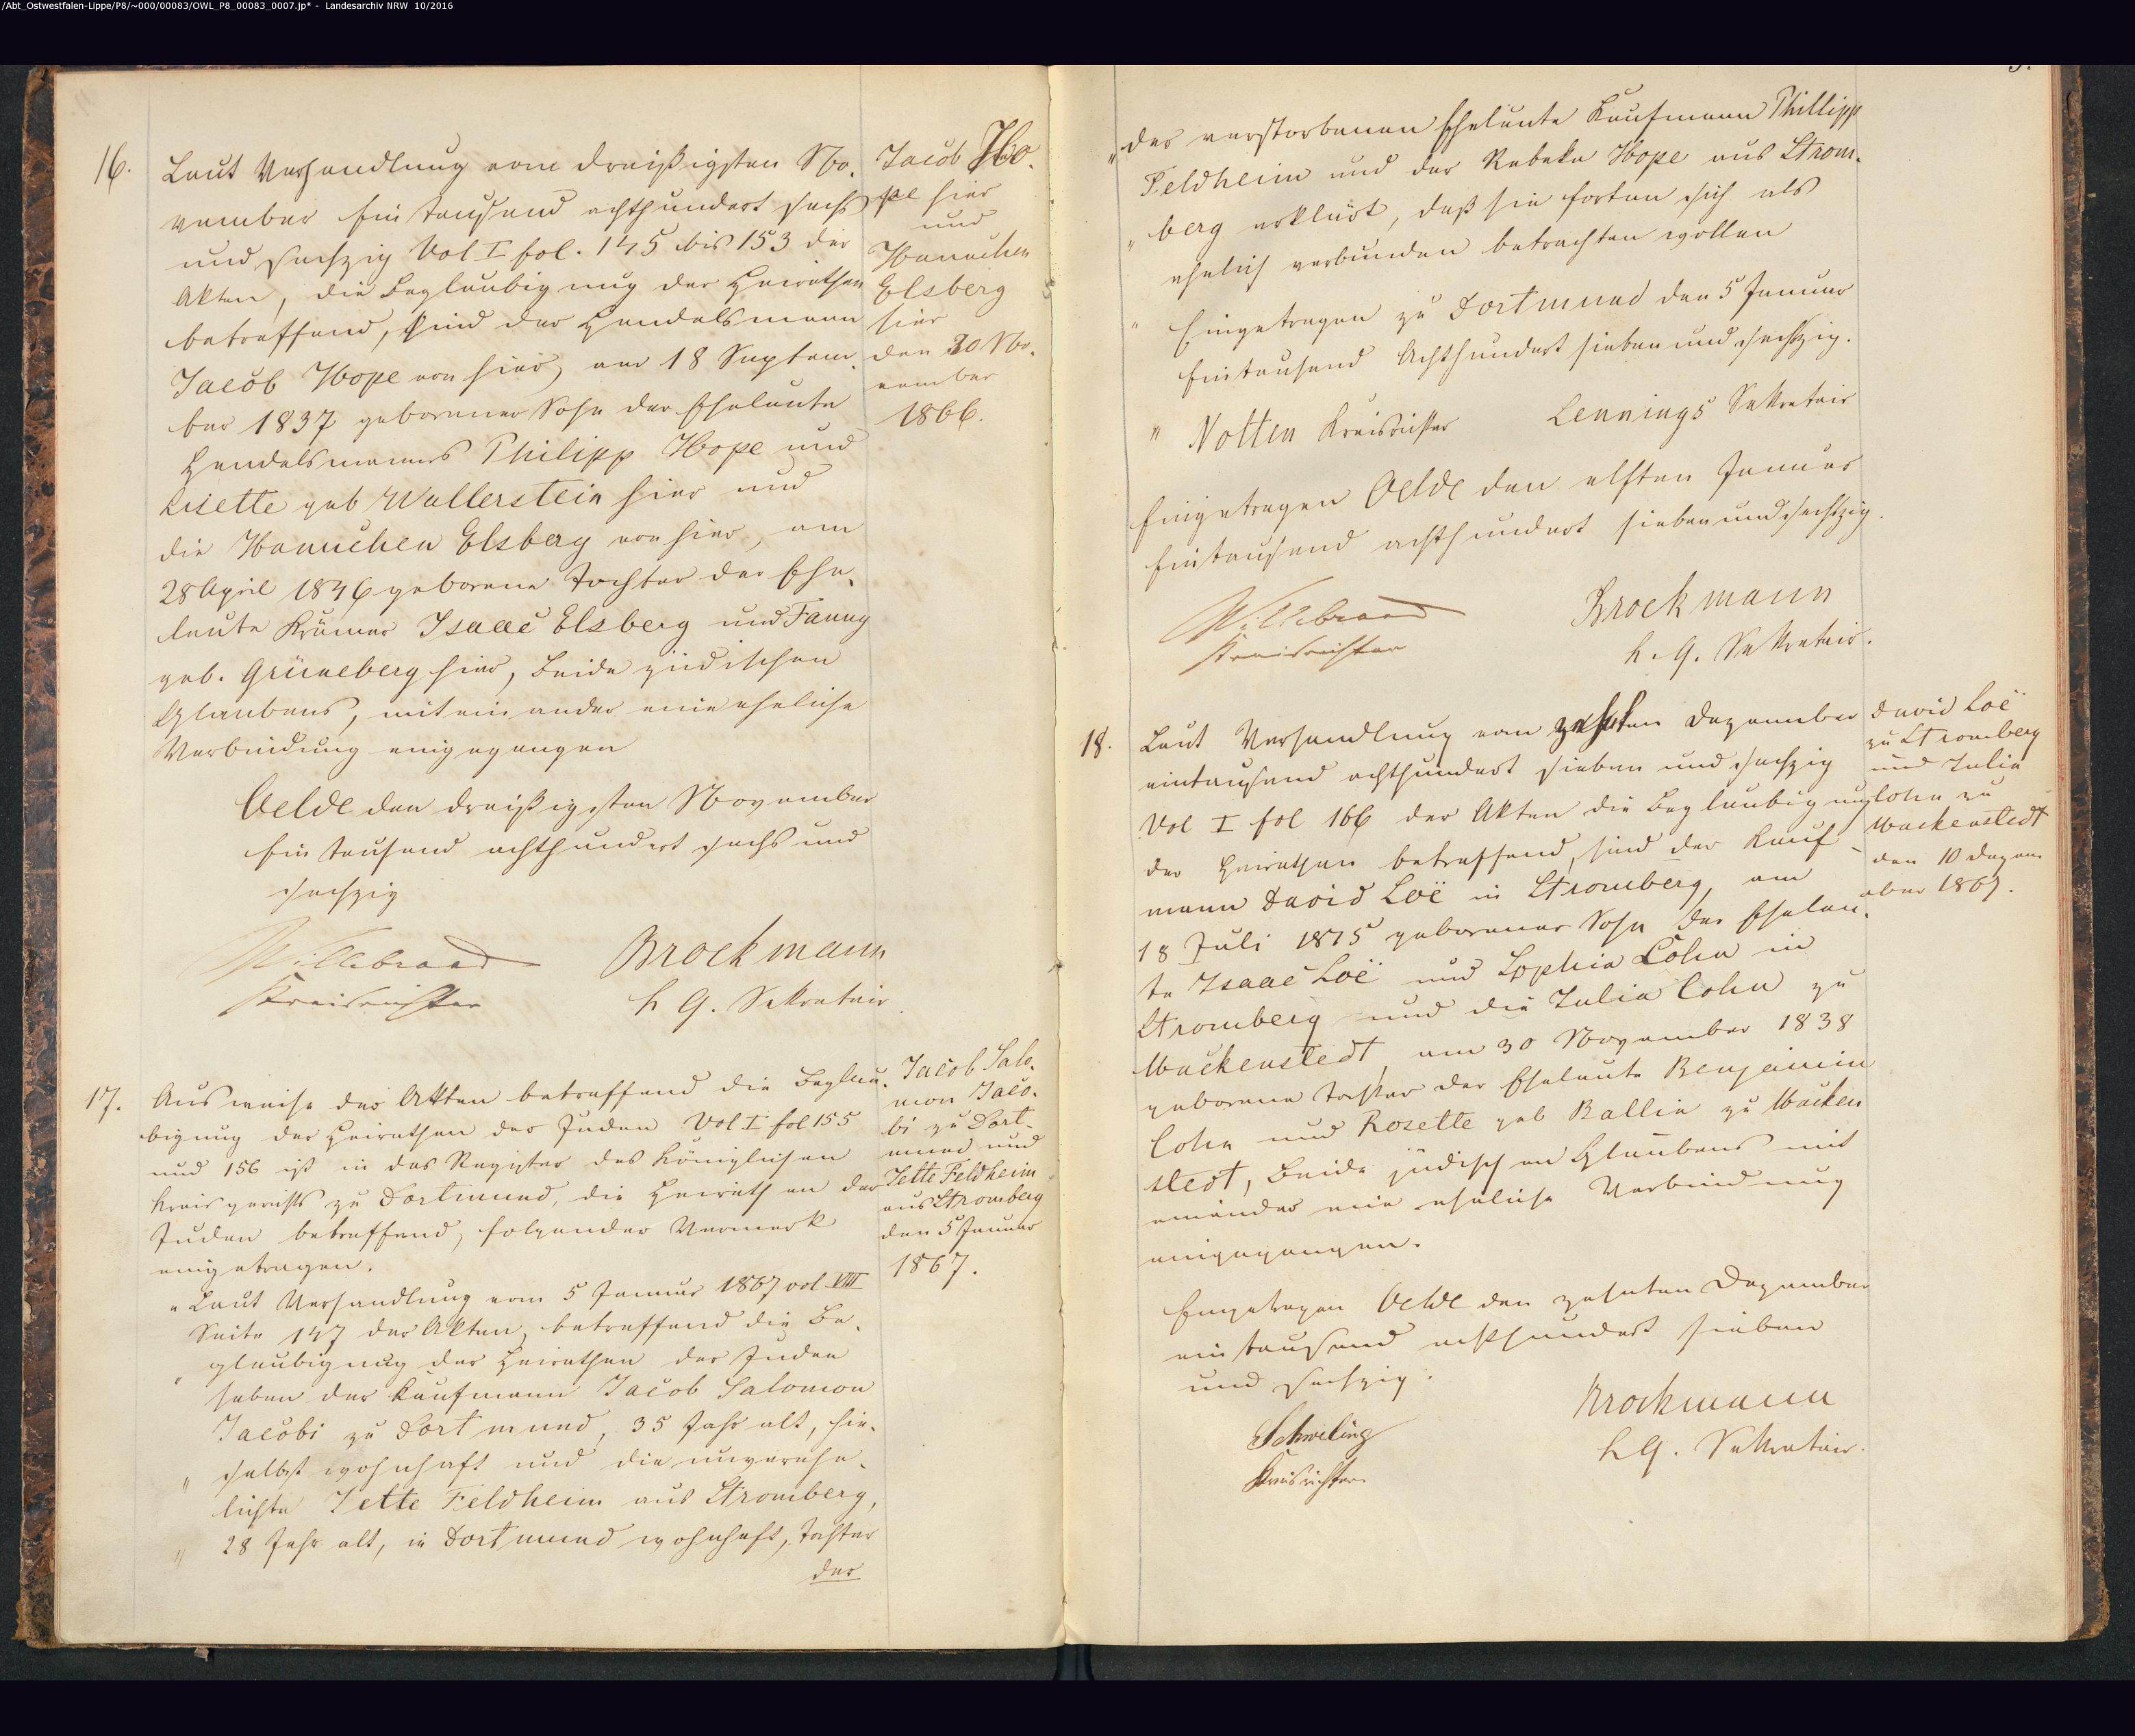 /Abt_Ostwestfalen-Lippe/P8/~000/00083/OWL_P8_00083_0007.jp* - Landesarchiv NRW 10/2016
16.
Laut Verhandlung vom dreißigsten No-
vember Ein tausend achthundert sechs
und sechzig Vol I fol. 145 bis 153 der
Akten, die Beglaubigung der Heirathen
betreffend, sind der Handelsmann
Jacob Hope von hier, am 18 Septem-
ber 1837 geborener Sohn der Eheleute
Handelsmanns Philipp Hope und
Lisette geb Wallerstein hier und
die Hannchen Elsberg von hier, am
28 April 1846 geborene Tochter der Ehe-
leute Krämer Isaac Elsberg und Fanny
geb. Grüneberg hier, Beide jüdischen
Glaubens, mit einander eine eheliche
Verbindung eingegangen
Oelde den dreißigsten November
Ein tausend achthundert sechs und
sechzig
Willebrand
Kreisrichter
Brockmann
k. G. Sekretair
Jacob Ho-
pe hier
und
Hannchen
Elsberg
hier
den 30 No-
vember
1866.
17.
Ausweise der Akten betreffend die Beglau-
bigung der Heirathen der Juden Vol I fol 155
und 156 ist in das Register des Königlichen
Kreisgerichts zu Dortmund, die Heirathen der
Juden betreffend, folgender Vermerk
eingetragen.
"Laut Verhandlung vom 5 Januar 1867 vol VIII
Seite 147 der Akten, betreffend die Be-
" glaubigung der Heirathen der Juden
haben der Kaufmann Jacob Salomon
Jacobi zu Dortmund, 35 Jahr alt, hie-
" selbst wohnhaft und die unverehe-
lichte Jette Feldheim aus Stromberg,
" 28 Jahr alt, in Dortmund wohnhaft, Tochter
der
Jacob Salo-
mon Jaco-
bi zu Dort-
mund und
Jette Feldheim
aus Stromberg
den 5 Januar
1867.
" der verstorbenen Eheleute Kaufmann Phillipp
Feldheim und der Rebeka Hope aus Strom-
" berg erklärt, daß sie fortan sich als
ehelich verbunden betrachten wollen
" Eingetragen zu Dortmund den 5 Januar
Eintausend Achthundert sieben und sechzig.
" Notten Kreisrichter Lennings Sekretair
Eingetragen Oelde den elften Januar
Eintausend achthundert sieben und sechzig.
Willebrand
Kreisrichter
Brockmann
k. G. Sekretair.
18.
Laut Verhandlung vom zehnten Dezember
eintausend achthundert sieben und sechzig
Vol I fol 166 der Akten die Beglaubigung
der Heirathen betreffend, sind der Kauf-
mann David Loë in Stromberg, am
18 Juli 1875 geborener Sohn der Eheleu-
te Isaac Loë und Sophia Cohn in
Stromberg und die Julia Cohn zu
Mackenstedt, am 30 November 1838
geborene Tochter der Eheleute Benjamin
Cohn und Rosette geb Ballin zu Macken
stedt, Beide jüdischen Glaubens mit
einander eine eheliche Verbindung
eingegangen.
Eingetragen Oelde den zehnten Dezember
eintausend achthundert sieben
und sechzig.
Schweling
Kreisrichter.
Brockmann
k G. Sekretair.
David Loë
zu Stromberg
und Julia
Cohn zu
Mackenstedt
den 10 Dezem
ber 1867.